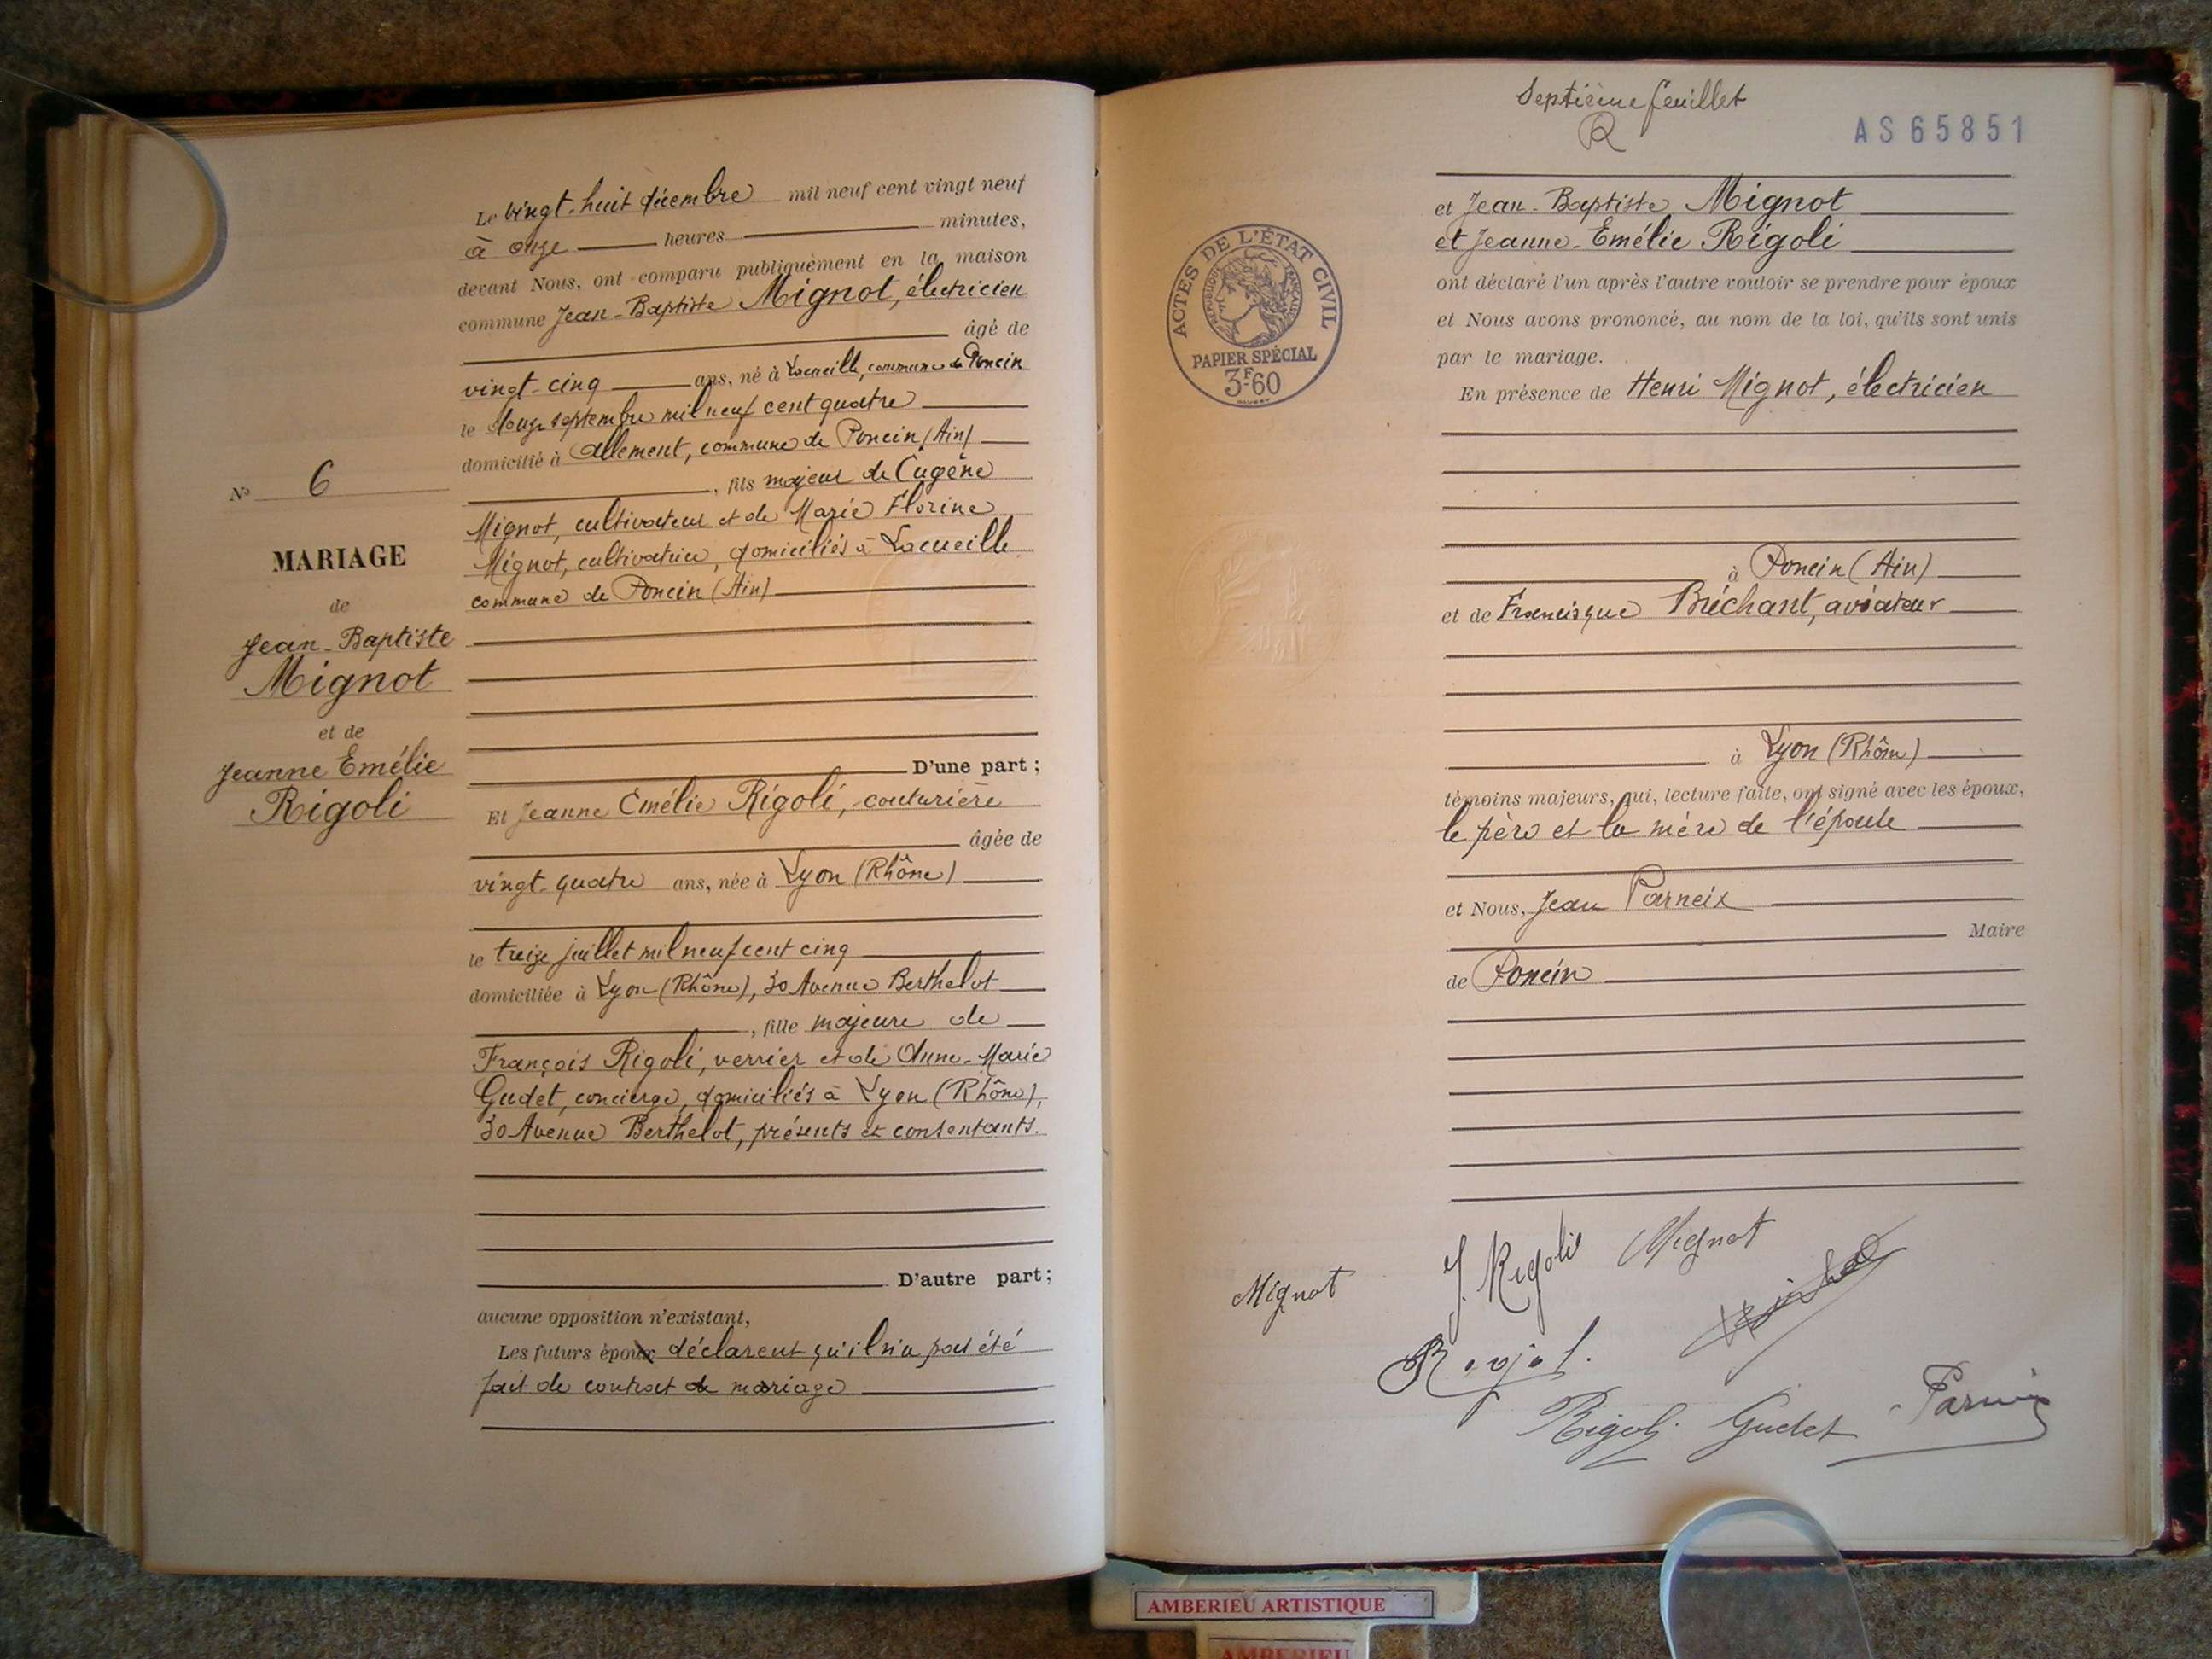 Le vingt-huit décembre mil neuf cent vingt neuf
à onze heures minutes,
devant Nous, ont comparu publiquement en la maison
commune Jean-Baptiste Mignot, électricien
âgé de
vingt-cinq ans, né à Lacueille, commune de Poncin
le douze septembre mil neuf cent quatre
domicilié à Allement, commune de Poncin (Ain)
, fils majeur de Eugène
Mignot, cultivateur et de Marie Florine
Mignot, cultivatrice, domiciliés à Lacueille
commune de Poncin (Ain)
D'une part ;
Et Jeanne Emélie Rigoli, couturière
âgée de
vingt-quatre ans, née à Lyon (Rhône)
le treize juillet mil neuf cent cinq
domiciliée à Lyon (Rhône), 30 Avenue Berthelot
, fille majeure de
François Rigoli, verrier et de Anne-Marie
Gudet, concierge, domiciliés à Lyon (Rhône),
30 Avenue Berthelot, présents et consentants.
D'autre part ;
aucune opposition n'existant,
Les futurs époux déclarent qu'il n'a pas été
fait de contrat de mariage
N° 6
MARIAGE
de
Jean-Baptiste
Mignot
et de
Jeanne Emélie
Rigoli
Septième feuillet
R
AS 65851
ACTES DE L'ÉTAT CIVIL
REPUBLIQUE FRANÇAISE
PAPIER SPÉCIAL
3F60
et Jean-Baptiste Mignot
et Jeanne-Emélie Rigoli
ont déclaré l'un après l'autre vouloir se prendre pour époux
et Nous avons prononcé, au nom de la loi, qu'ils sont unis
par le mariage.
En présence de Henri Mignot, électricien
à Poncin (Ain)
et de Francisque Bréchant, aviateur
à Lyon (Rhône)
témoins majeurs, qui, lecture faite, ont signé avec les époux,
le père et la mère de l'épouse
et Nous, Jean Parneix
Maire
de Poncin
J. Rigoli Mignot
Mignot
Rigoli Gudet Parneix
AMBERIEU ARTISTIQUE
AMBERIEU